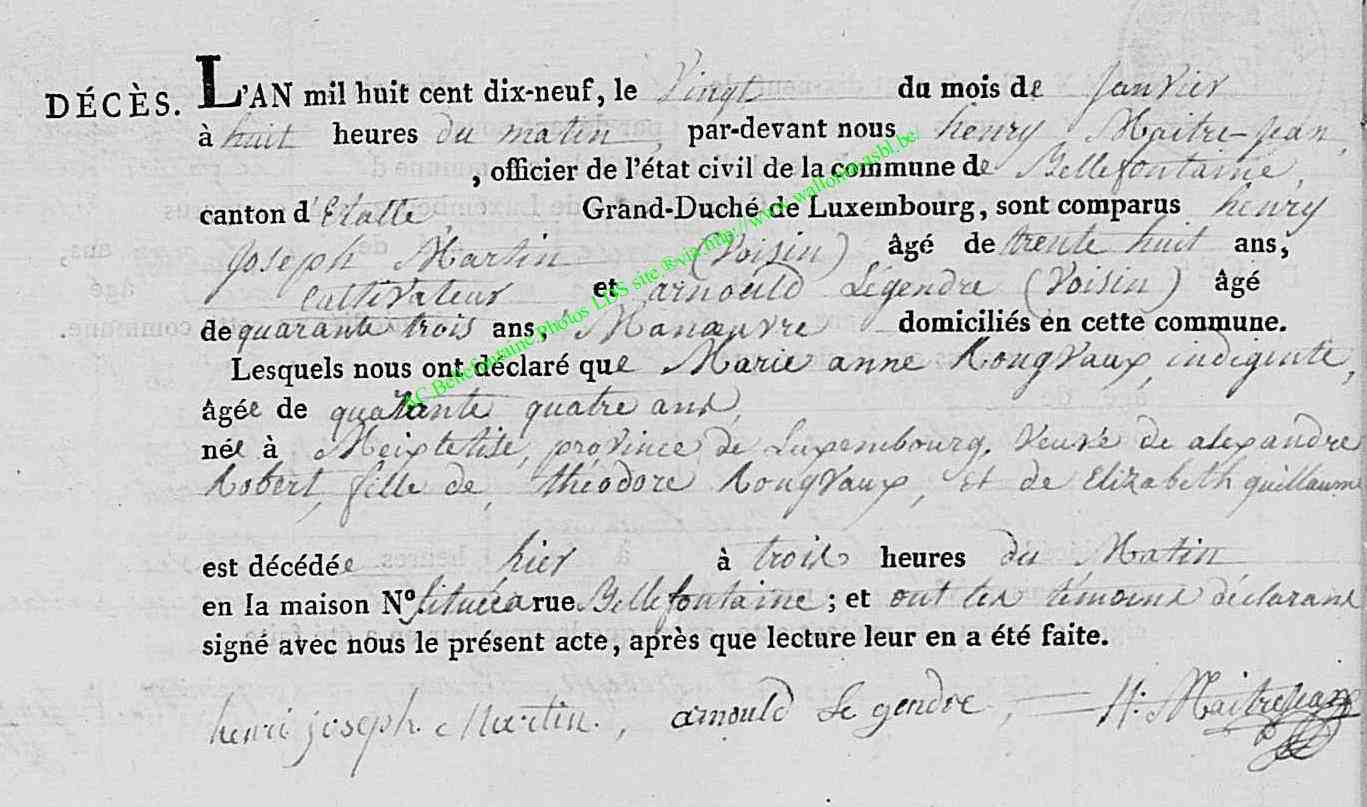 DÉCÈS. L'AN mil huit cent dix-neuf, le Vingt du mois de Janvier
à huit heures du matin, par-devant nous henry Maitre-jean,
, officier de l'état civil de la commune de Bellefontaine,
canton d'Etalle, Grand-Duché de Luxembourg, sont comparus henry
Joseph Martin (Voisin) âgé de trente huit ans,
Cultivateur et arnould Légendre (Voisin) âgé
de quarante trois ans, Manœuvre domiciliés en cette commune.
Lesquels nous ont déclaré que Marie anne Rougvaux, indigente,
âgée de quarante quatre ans,
née à Meixletite, province de Luxembourg, Veuve de alexandre
Robert, fille de, théodore Rougvaux, et de Elizabeth guillaume
est décédée hier à trois heures du Matin
en la maison Nº située a rue Bellefontaine ; et ont les témoins déclarans
signé avec nous le présent acte, après que lecture leur en a été faite.
henri joseph Martin., arnould Le gendre, H: Maitrejean
AC Bellefontaine Photos LDS site ® via http://www.wallonia-asbl.be/